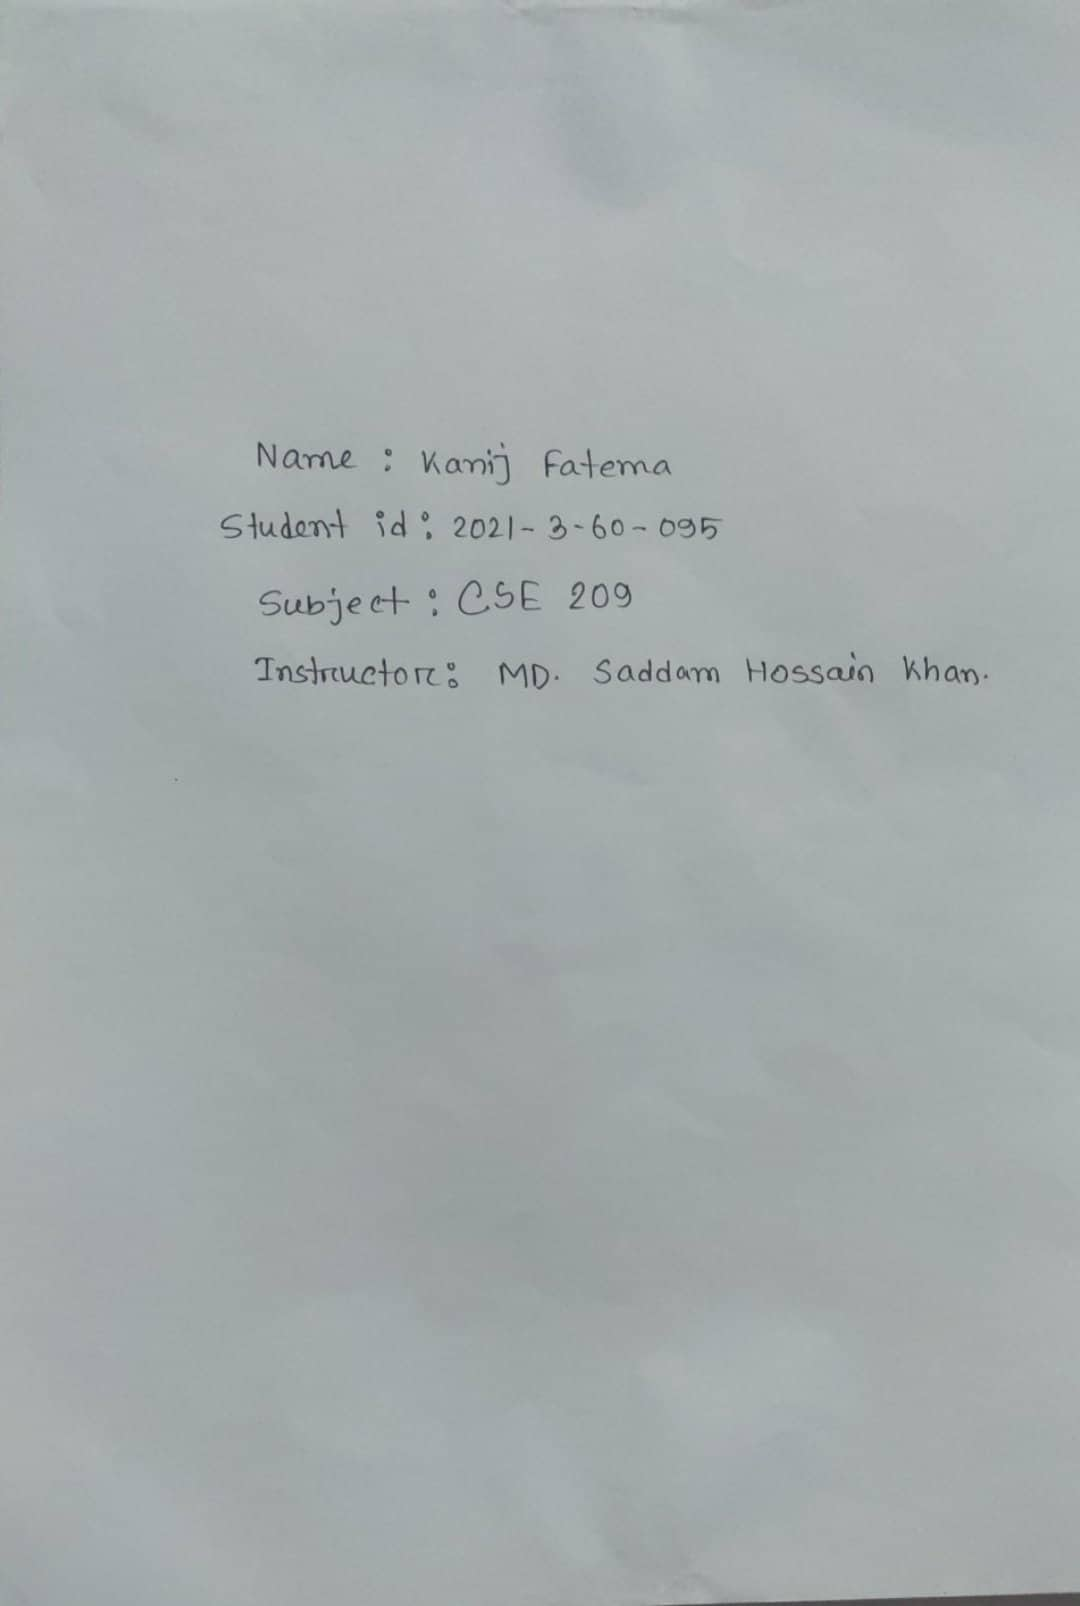 Name : Kanij Fatema
Student id : 2021-3-60-095
Subject : CSE 209
Instructor : MD. Saddam Hossain Khan.